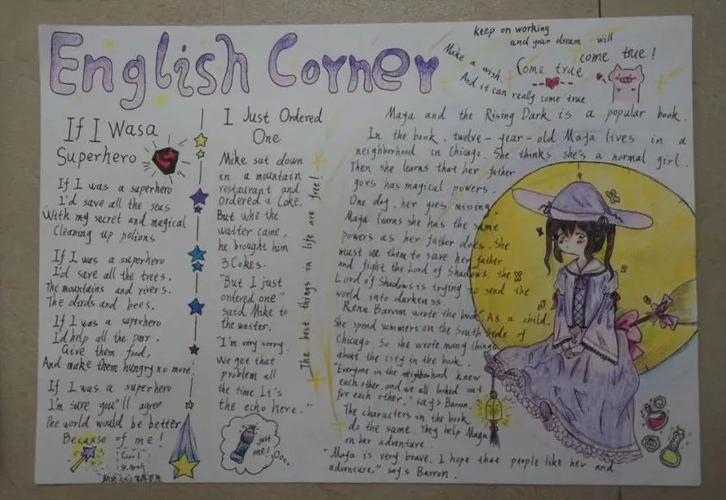 English Corner
keep on working
and your dream will
come true!
Make a wish.
Come true
And it can really come true
If I Was a
Superhero
If I was a superhero
I'd save all the seas
With my secret and magical
Cleaning up potions
If I was a superhero
I'd save all the trees.
The mountains and rivers.
The birds and bees.
If I was a superhero
I'd help all the poor.
Give them food,
And make them hungry no more.
If I was a superhero
I'm sure you'll agree
The world would be better
Because of me!
I Just Ordered
One
Mike sat down
in a mountain
restaurant and
ordered a Coke.
But whe the
waiter came,
he brought him
3 Cokes.
"But I just
ordered one"
said Mike to
the waiter.
"I'm very sorry.
We get that
problem all
the time It's
the echo here."
just
one! Ooo.
The best things in life are free!
Maya and the Rising Dark is a popular book.
In the book, twelve-year-old Maya lives in a
neighborhood in Chicago. She thinks she's a normal girl.
Then she learns that her father
has magical powers.
One day, her goes missing.
Maya learns she has the same
powers as her father does. She
must use them to save her father
and fight the Lord of Shadows. the
Lord of Shadows is trying to send the
world into darkness.
Rena Barron wrote the book. "As a child,
She spend summers on the South Side of
Chicago. So she wrote many things
about the city in the book.
"Everyone in the neighborhood knew
each other, and we all looked out
for each other," says Barron.
The characters in the book
do the same. They help Maya
on her adventure.
"Maya is very brave. I hope that people like her and
adventure," says Barron.